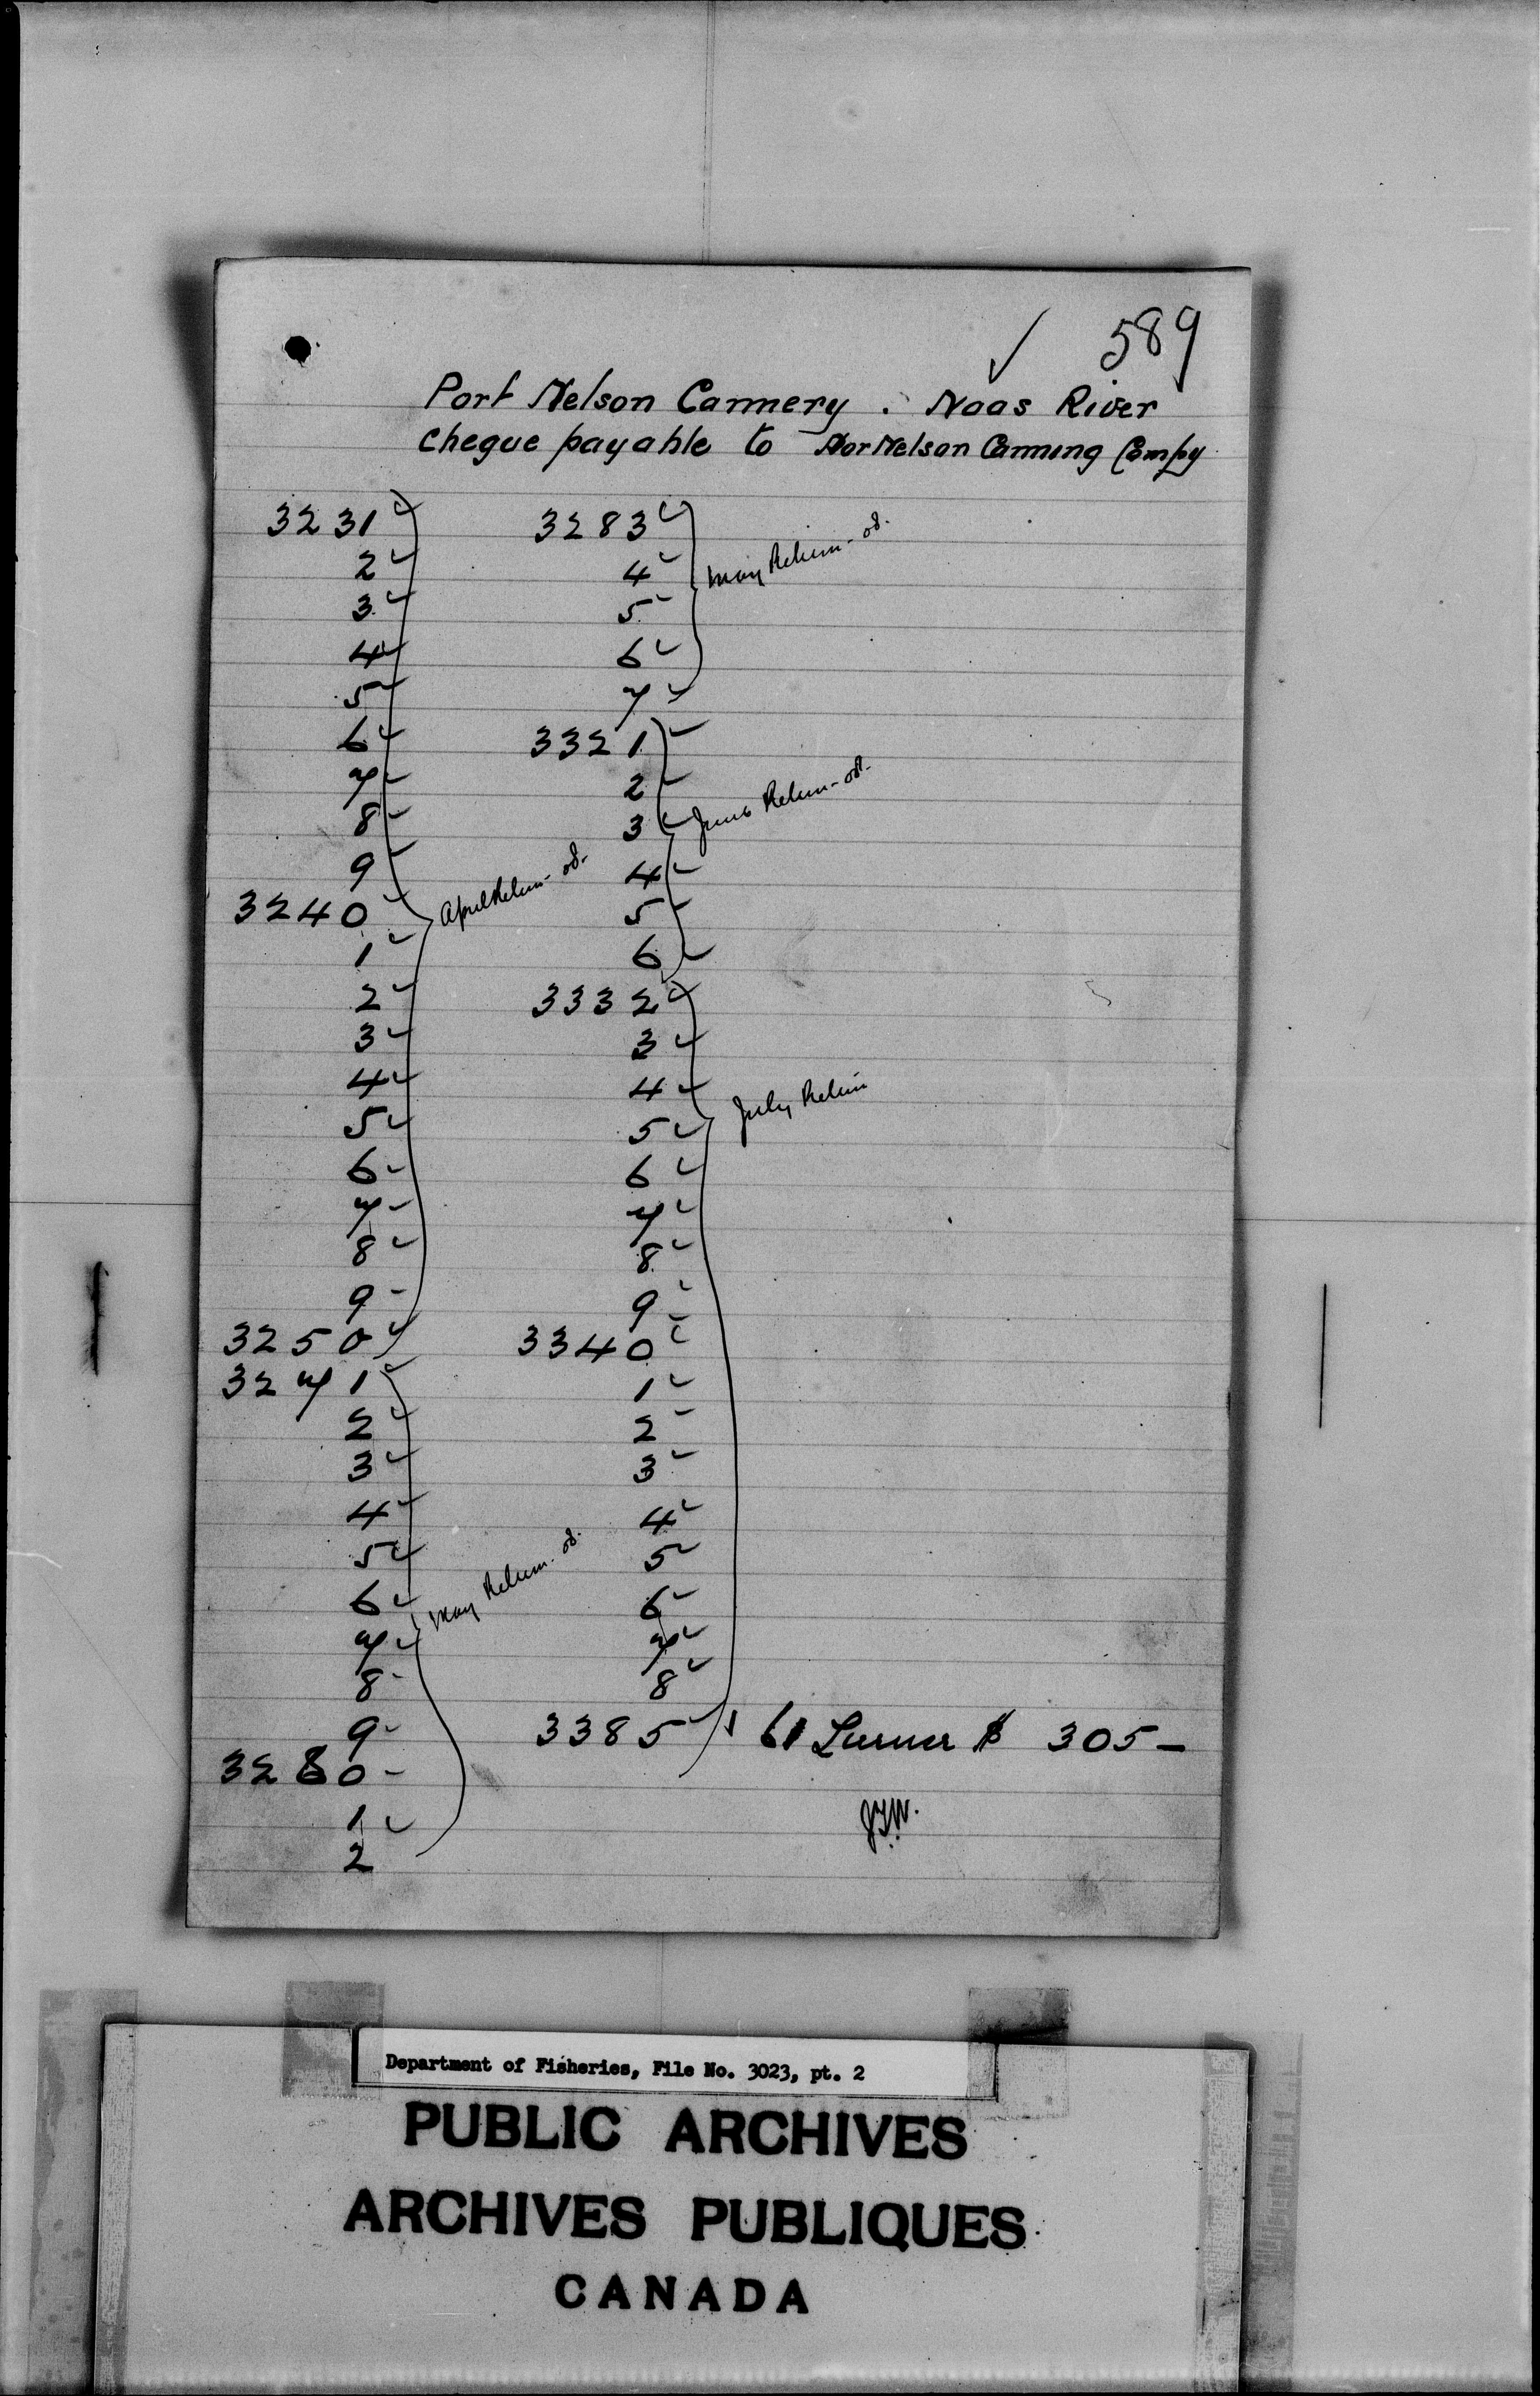 589
Port Nelson Cannery. Naas River
Cheque payable to Por Nelson Canning Compy
3231
2
3
4
5
6
7
8
9
3240
1
2
3
4
5
6
7
8
9
3250
April Return - od.
3271
2
3
4
5
6
7
8
9
3280
1
2
May Return - od.
3283
4
5
6
7
May Return - od.
3321
2
3
4
5
6
June Return - od.
3332
3
4
5
6
7
8
9
3340
1
2
3
4
5
6
7
8
3385
July Return
61 $ 305 -
Department of Fisheries, File No. 3023, pt. 2
PUBLIC ARCHIVES
ARCHIVES PUBLIQUES
CANADA